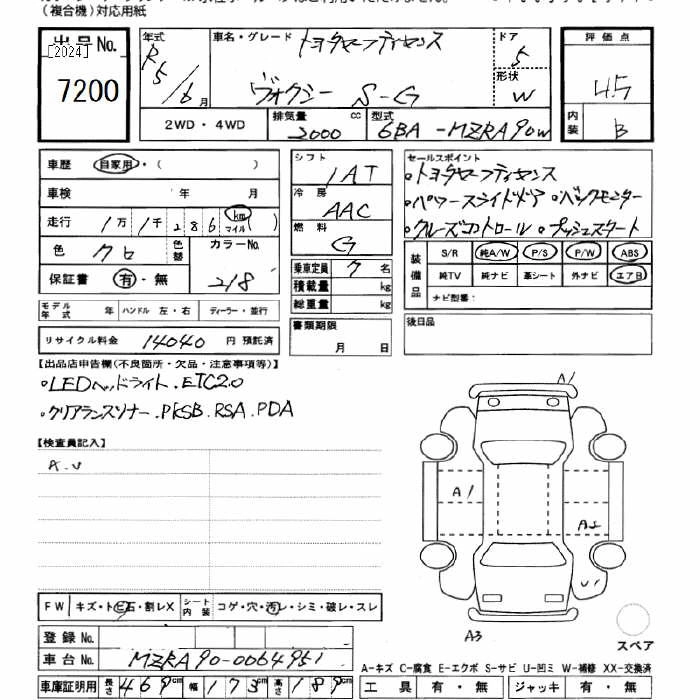 （複合機）対応用紙
出品No. [2024] 7200
年式 R5/6月
車名・グレード トヨタセーフティセンス
ヴォクシー S-G
ドア 5
形状 W
評価点 4.5
内装 B
2WD・4WD 排気量 2000 cc 型式 6BA-MZRA90W
車歴 自家用・（ ）
車検 年 月
走行 1万1千286 km マイル（ ）
色 クロ 色替 カラーNo. 218
保証書 有・無
モデル年式 年 ハンドル 左・右 ディーラー・並行
リサイクル料金 14040 円 預託済
シフト IAT
冷房 AAC
燃料 G
乗車定員 7 名
積載量 kg
総重量 kg
書類期限 月 日
セールスポイント
・トヨタセーフティセンス
・パワースライドドア ・バックモニター
・クルーズコントロール ・プッシュスタート
装備品 S/R 純A/W P/S P/W ABS
純TV 純ナビ 革シート 外ナビ エアB
ナビ型番：
後日品
【出品店申告欄(不良箇所・欠品・注意事項等)】
・LEDヘッドライト.ETC2.0
・クリアランスソナー.PKSB.RSA.PDA
【検査員記入】
A.U
A1
A1
A2
U1
A3
スペア
FW キズ・トビ石・割レX シート内装 コゲ・穴・汚レ・シミ・破レ・スレ
登録No.
車台No. MZRA90-0064951
車庫証明用 長さ 469cm 幅 173cm 高さ 189cm
A-キズ C-腐食 E-エクボ S-サビ U-凹ミ W-補修 XX-交換済
工具 有・無 ジャッキ 有・無